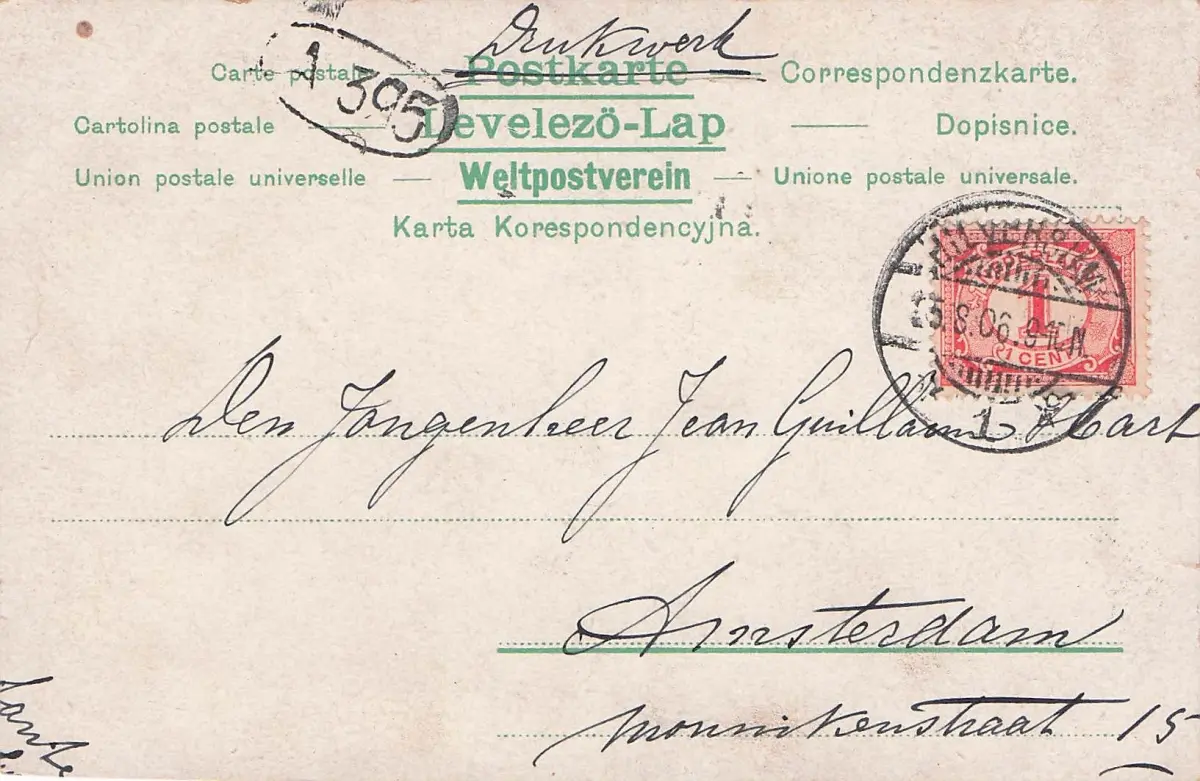 Drukwerk
Carte postale — Postkarte — Correspondenzkarte.
1 395
Cartolina postale — Levelezö-Lap — Dopisnice.
Union postale universelle — Weltpostverein — Unione postale universale.
Karta Korespondencyjna.
HILVERSUM
1 CENT
1
5.8.06.9-10N
1
Den Jongenheer Jean Guillaume
Amsterdam
Monnikenstraat 15
Tante